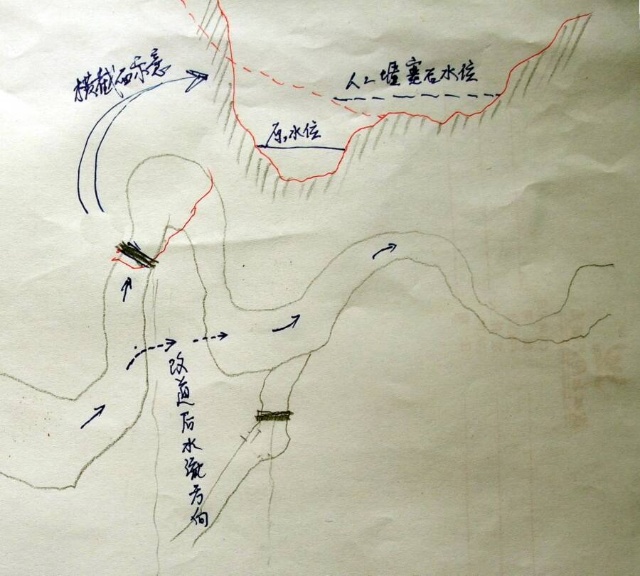 横截面示意
人工堰塞后水位
原水位
改道后水流方向